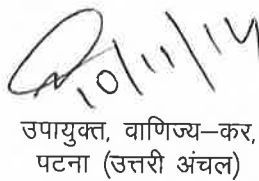 10/11/14
उपायुक्त, वाणिज्य–कर,
पटना (उत्तरी अंचल)